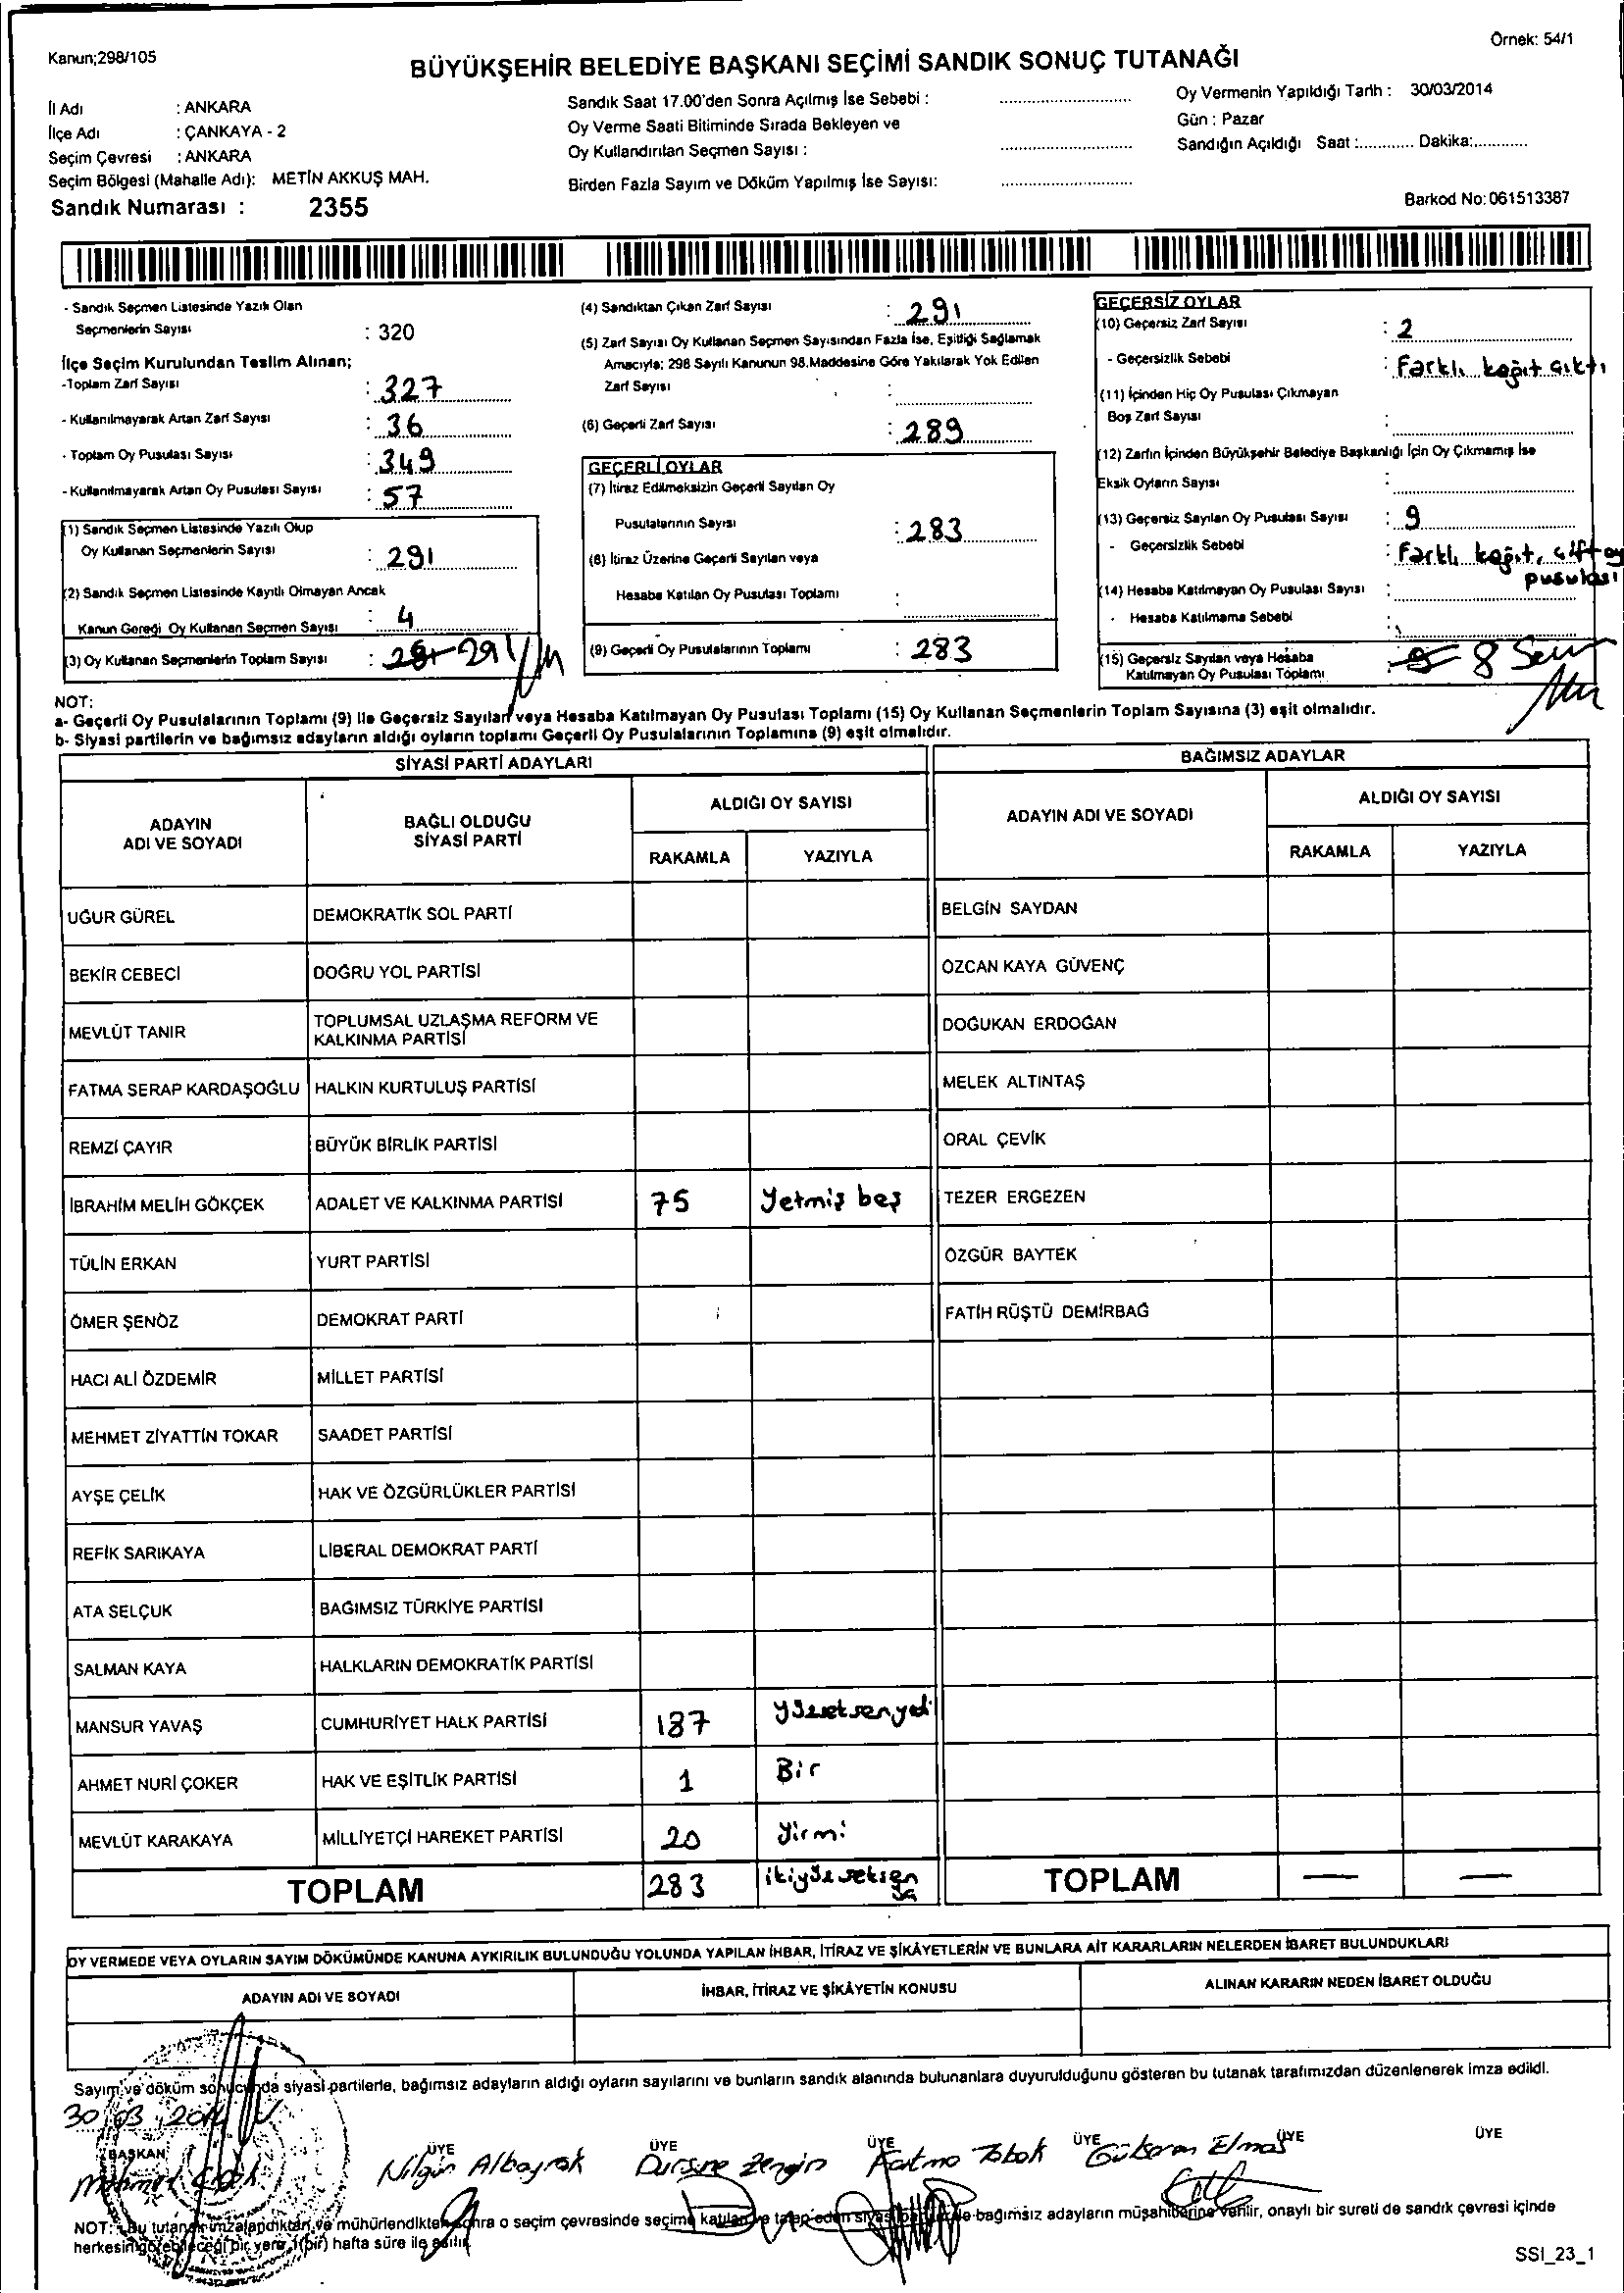 Kanun;298/105
Örnek: 54/1
BÜYÜKŞEHİR BELEDİYE BAŞKANI SEÇİMİ SANDIK SONUÇ TUTANAĞI
İl Adı : ANKARA
İlçe Adı : ÇANKAYA - 2
Seçim Çevresi : ANKARA
Seçim Bölgesi (Mahalle Adı): METİN AKKUŞ MAH.
Sandık Numarası : 2355
Sandık Saat 17.00'den Sonra Açılmış İse Sebebi :
Oy Verme Saati Bitiminde Sırada Bekleyen ve
Oy Kullandırılan Seçmen Sayısı :
Birden Fazla Sayım ve Döküm Yapılmış İse Sayısı:
Oy Vermenin Yapıldığı Tarih : 30/03/2014
Gün : Pazar
Sandığın Açıldığı Saat :............ Dakika:............
Barkod No: 061513387
- Sandık Seçmen Listesinde Yazılı Olan
Seçmenlerin Sayısı : 320
İlçe Seçim Kurulundan Teslim Alınan;
-Toplam Zarf Sayısı : 327
- Kullanılmayarak Artan Zarf Sayısı : 36
- Toplam Oy Pusulası Sayısı : 349
- Kullanılmayarak Artan Oy Pusulası Sayısı : 57
(1) Sandık Seçmen Listesinde Yazılı Olup
Oy Kullanan Seçmenlerin Sayısı : 291
(2) Sandık Seçmen Listesinde Kayıtlı Olmayan Ancak
Kanun Gereği Oy Kullanan Seçmen Sayısı : 4
(3) Oy Kullanan Seçmenlerin Toplam Sayısı : 291
(4) Sandıktan Çıkan Zarf Sayısı : 291
(5) Zarf Sayısı Oy Kullanan Seçmen Sayısından Fazla İse, Eşitliği Sağlamak
Amacıyla; 298 Sayılı Kanunun 98.Maddesine Göre Yakılarak Yok Edilen
Zarf Sayısı :
(6) Geçerli Zarf Sayısı : 289
GEÇERLİ OYLAR
(7) İtiraz Edilmeksizin Geçerli Sayılan Oy
Pusulalarının Sayısı : 283
(8) İtiraz Üzerine Geçerli Sayılan veya
Hesaba Katılan Oy Pusulası Toplamı :
(9) Geçerli Oy Pusulalarının Toplamı : 283
GEÇERSİZ OYLAR
(10) Geçersiz Zarf Sayısı : 2
- Geçersizlik Sebebi : Farklı kağıt çıktı
(11) İçinden Hiç Oy Pusulası Çıkmayan
Boş Zarf Sayısı :
(12) Zarfın İçinden Büyükşehir Belediye Başkanlığı İçin Oy Çıkmamış İse
Eksik Oyların Sayısı :
(13) Geçersiz Sayılan Oy Pusulası Sayısı : 9
- Geçersizlik Sebebi : Farklı kağıt, çift oy
pusulası
(14) Hesaba Katılmayan Oy Pusulası Sayısı :
- Hesaba Katılmama Sebebi :
(15) Geçersiz Sayılan veya Hesaba
Katılmayan Oy Pusulası Toplamı : 9 8
NOT:
a- Geçerli Oy Pusulalarının Toplamı (9) ile Geçersiz Sayılan veya Hesaba Katılmayan Oy Pusulası Toplamı (15) Oy Kullanan Seçmenlerin Toplam Sayısına (3) eşit olmalıdır.
b- Siyasi partilerin ve bağımsız adayların aldığı oyların toplamı Geçerli Oy Pusulalarının Toplamına (9) eşit olmalıdır.
SİYASİ PARTİ ADAYLARI BAĞIMSIZ ADAYLAR
ADAYIN
ADI VE SOYADI
BAĞLI OLDUĞU
SİYASİ PARTİ
ALDIĞI OY SAYISI
RAKAMLA YAZIYLA
ADAYIN ADI VE SOYADI
ALDIĞI OY SAYISI
RAKAMLA YAZIYLA
UĞUR GÜREL DEMOKRATİK SOL PARTİ BELGİN SAYDAN
BEKİR CEBECİ DOĞRU YOL PARTİSİ ÖZCAN KAYA GÜVENÇ
MEVLÜT TANIR TOPLUMSAL UZLAŞMA REFORM VE
KALKINMA PARTİSİ DOĞUKAN ERDOĞAN
FATMA SERAP KARDAŞOĞLU HALKIN KURTULUŞ PARTİSİ MELEK ALTINTAŞ
REMZİ ÇAYIR BÜYÜK BİRLİK PARTİSİ ORAL ÇEVİK
İBRAHİM MELİH GÖKÇEK ADALET VE KALKINMA PARTİSİ 75 Yetmiş beş TEZER ERGEZEN
TÜLİN ERKAN YURT PARTİSİ ÖZGÜR BAYTEK
ÖMER ŞENÖZ DEMOKRAT PARTİ FATİH RÜŞTÜ DEMİRBAĞ
HACI ALİ ÖZDEMİR MİLLET PARTİSİ
MEHMET ZİYATTİN TOKAR SAADET PARTİSİ
AYŞE ÇELİK HAK VE ÖZGÜRLÜKLER PARTİSİ
REFİK SARIKAYA LİBERAL DEMOKRAT PARTİ
ATA SELÇUK BAĞIMSIZ TÜRKİYE PARTİSİ
SALMAN KAYA HALKLARIN DEMOKRATİK PARTİSİ
MANSUR YAVAŞ CUMHURİYET HALK PARTİSİ 187 yüzseksenyedi
AHMET NURİ ÇOKER HAK VE EŞİTLİK PARTİSİ 1 Bir
MEVLÜT KARAKAYA MİLLİYETÇİ HAREKET PARTİSİ 20 Yirmi
TOPLAM 283 ikiyüzseksen TOPLAM — —
OY VERMEDE VEYA OYLARIN SAYIM DÖKÜMÜNDE KANUNA AYKIRILIK BULUNDUĞU YOLUNDA YAPILAN İHBAR, İTİRAZ VE ŞİKÂYETLERİN VE BUNLARA AİT KARARLARIN NELERDEN İBARET BULUNDUKLARI
ADAYIN ADI VE SOYADI İHBAR, İTİRAZ VE ŞİKÂYETİN KONUSU ALINAN KARARIN NEDEN İBARET OLDUĞU
Sayım ve döküm sonucunda siyasi partilerle, bağımsız adayların aldığı oyların sayılarını ve bunların sandık alanında bulunanlara duyurulduğunu gösteren bu tutanak tarafımızdan düzenlenerek imza edildi.
30 03 2014
BAŞKAN ÜYE ÜYE ÜYE ÜYE ÜYE ÜYE
Mehmet Nilgün Albayrak Dursune Zengin Fatma Gülseren Elmas
NOT: Bu tutanak imzalandıktan ve mühürlendikten sonra o seçim çevresinde seçime katılan ve talep eden siyasi partiler ile bağımsız adayların müşahitlerine verilir, onaylı bir sureti de sandık çevresi içinde
herkesin görebileceği bir yere 1(bir) hafta süre ile asılır.
SSI_23_1